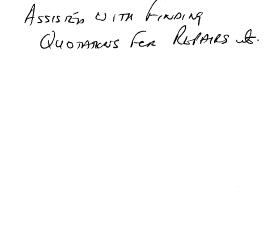 ASSISTED WITH FINDING
QUOTATIONS FOR REPAIRS etc.